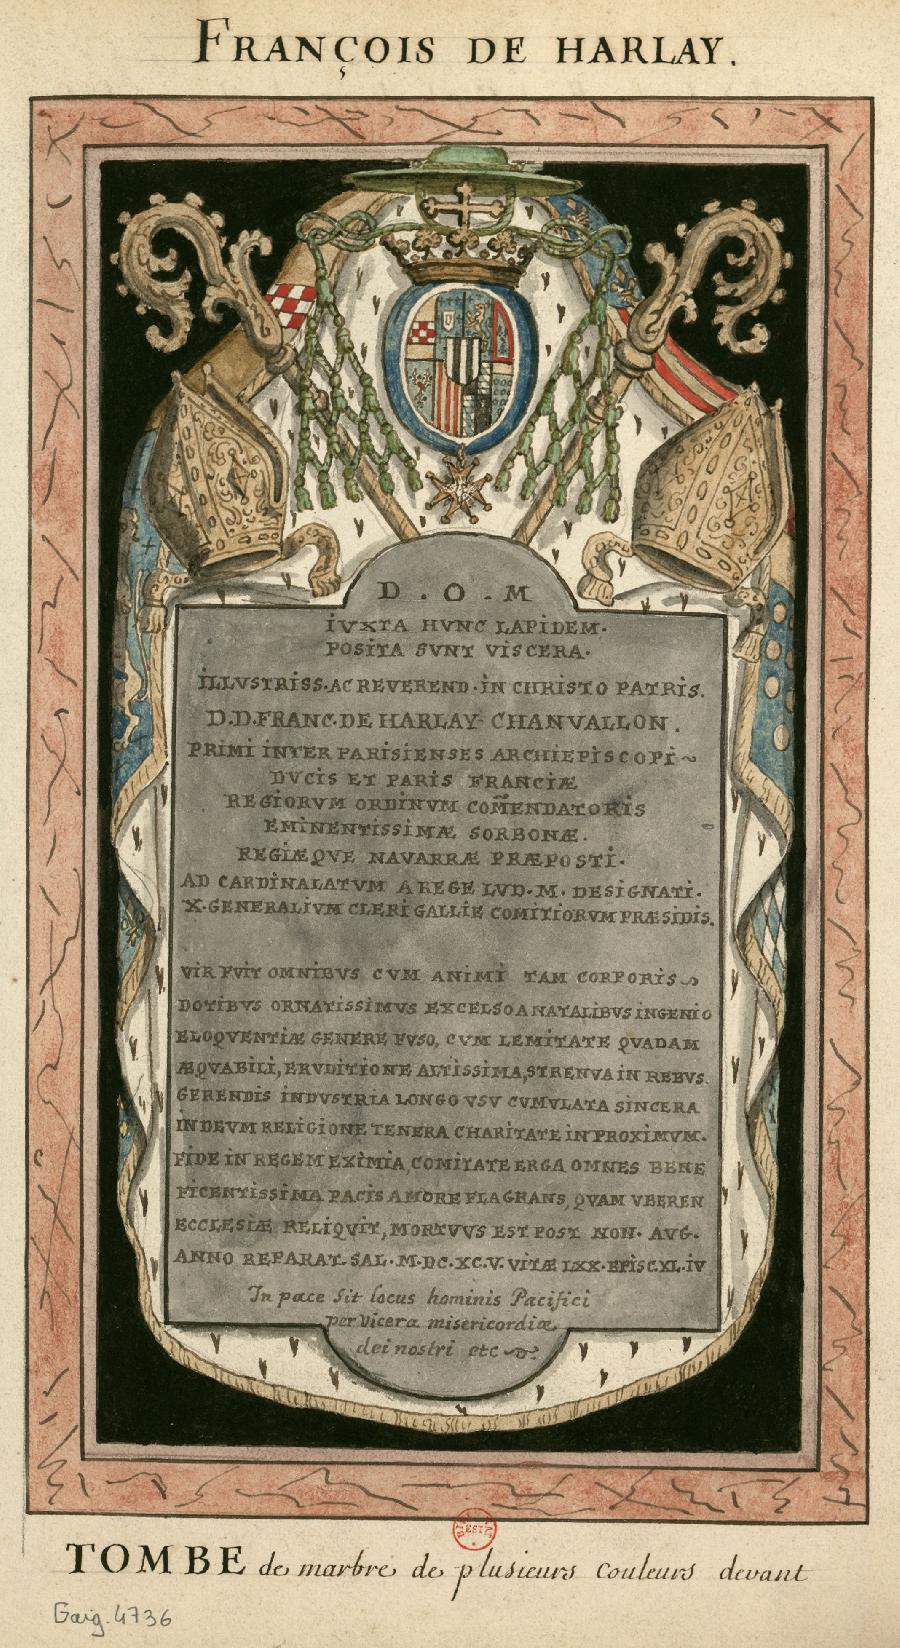 FRANÇOIS DE HARLAY.
D. O. M
IVXTA HVNC LAPIDEM.
POSITA SVNT VISCERA.
ILLVSTRISS. AC REVEREND. IN CHRISTO PATRIS.
D. D. FRANC. DE HARLAY- CHANVALLON.
PRIMI INTER PARISIENSES ARCHIEPISCOPI
DVCIS ET PARIS FRANCIÆ
REGIORVM ORDINVM COM̃ENDATORIS
EMINENTISSIMÆ SORBONÆ.
REGIÆQVE NAVARRÆ PRÆPOSTI.
AD CARDINALATVM A REGE LVD. M. DESIGNATI.
X. GENERALIVM CLERI GALLIE COMITIORVM PRÆSIDIS.
VIR FVIT OMNIBVS CVM ANIMI TAM CORPORIS
DOTIBVS ORNATISSIMVS EXCELSO A NATALIBVS INGENIO
ELOQVENTIÆ GENERE FVSO, CVM LEMITATE QVADAM
ÆQVABILI, ERVDITIONE ALTISSIMA, STRENVA IN REBVS.
GERENDIS INDVSTRIA LONGO VSV CVMVLATA SINCERA
IN DEVM RELIGIONE TENERA CHARITATE IN PROXIMVM.
FIDE IN REGEM EXIMIA, COMITATE ERGA OMNES BENE
FICENTISSIMA PACIS AMORE FLAGRANS, QVAM VBEREN
ECCLESIÆ RELIQVIT, MORTVVS EST POST NON. AVG.
ANNO REPARAT. SAL. M. DC. XC. V. VITÆ LXX. EPISC. XL. IV
In pace Sit locus hominis Pacifici
per Vicera misericordiæ
dei nostri etc
TOMBE de marbre de plusieurs couleurs devant
Gaig. 4736